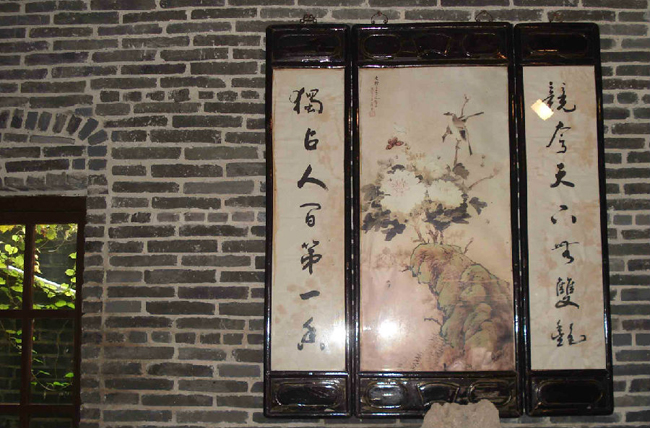 競夸天下無雙艷
獨占人間第一香